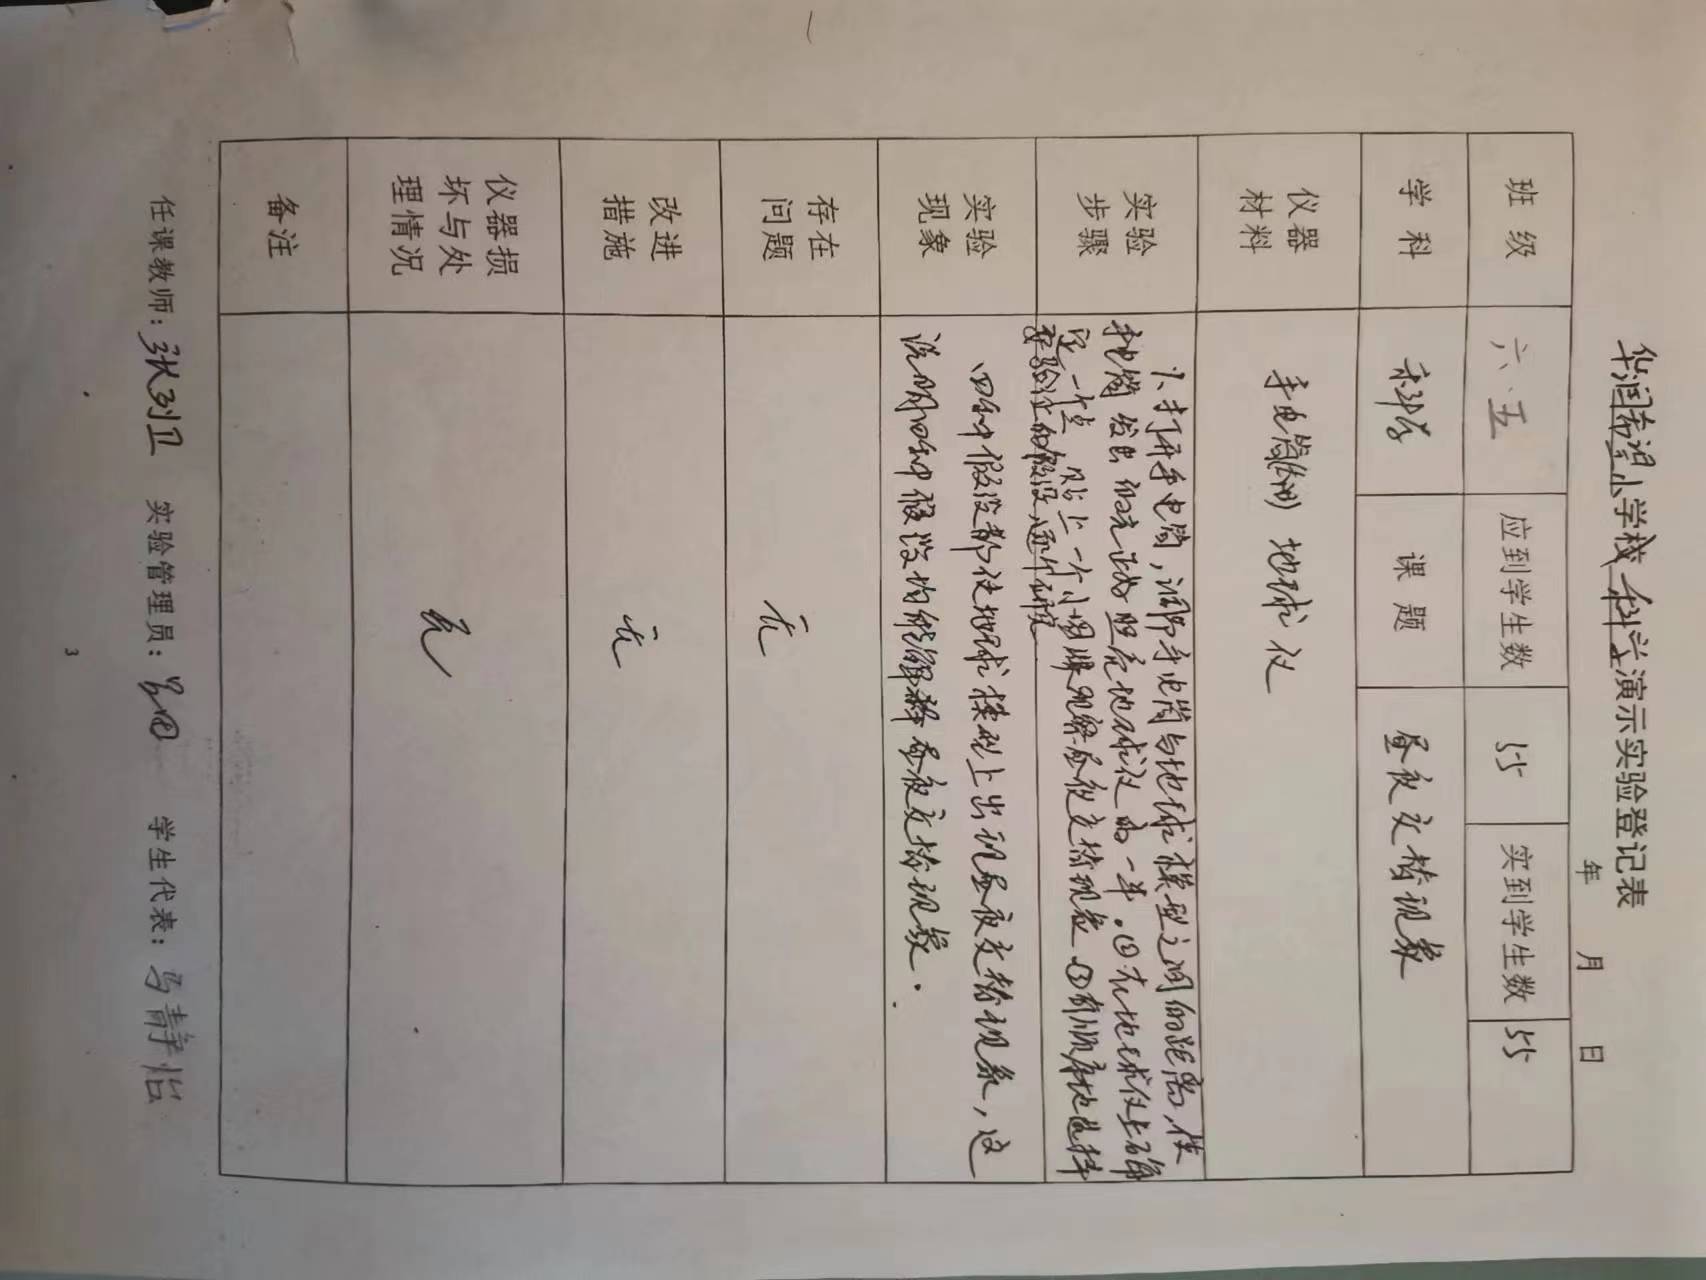 华润希望小学校 科学 演示实验登记表
年 月 日
班级 六.五 应到学生数 55 实到学生数 55
学科 科学 课题 昼夜交替现象
仪器材料 手电筒 地球仪
实验步骤 1、打开手电筒,调节手电筒与地球模型之间的距离,使
手电筒发出的光正好照亮地球仪的一半.②在地球仪上确
定一个点 贴上一个小 观察昼夜交替现象 ③有顺序地选择
要验证的假设,逐个
实验现象 四种假设都使地球模型上出现昼夜交替现象,这
说明四种假设均能解释昼夜交替现象.
存在问题 无
改进措施 无
仪器损坏与处理情况 无
备注
任课教师: 实验管理员: 学生代表:马静怡
3